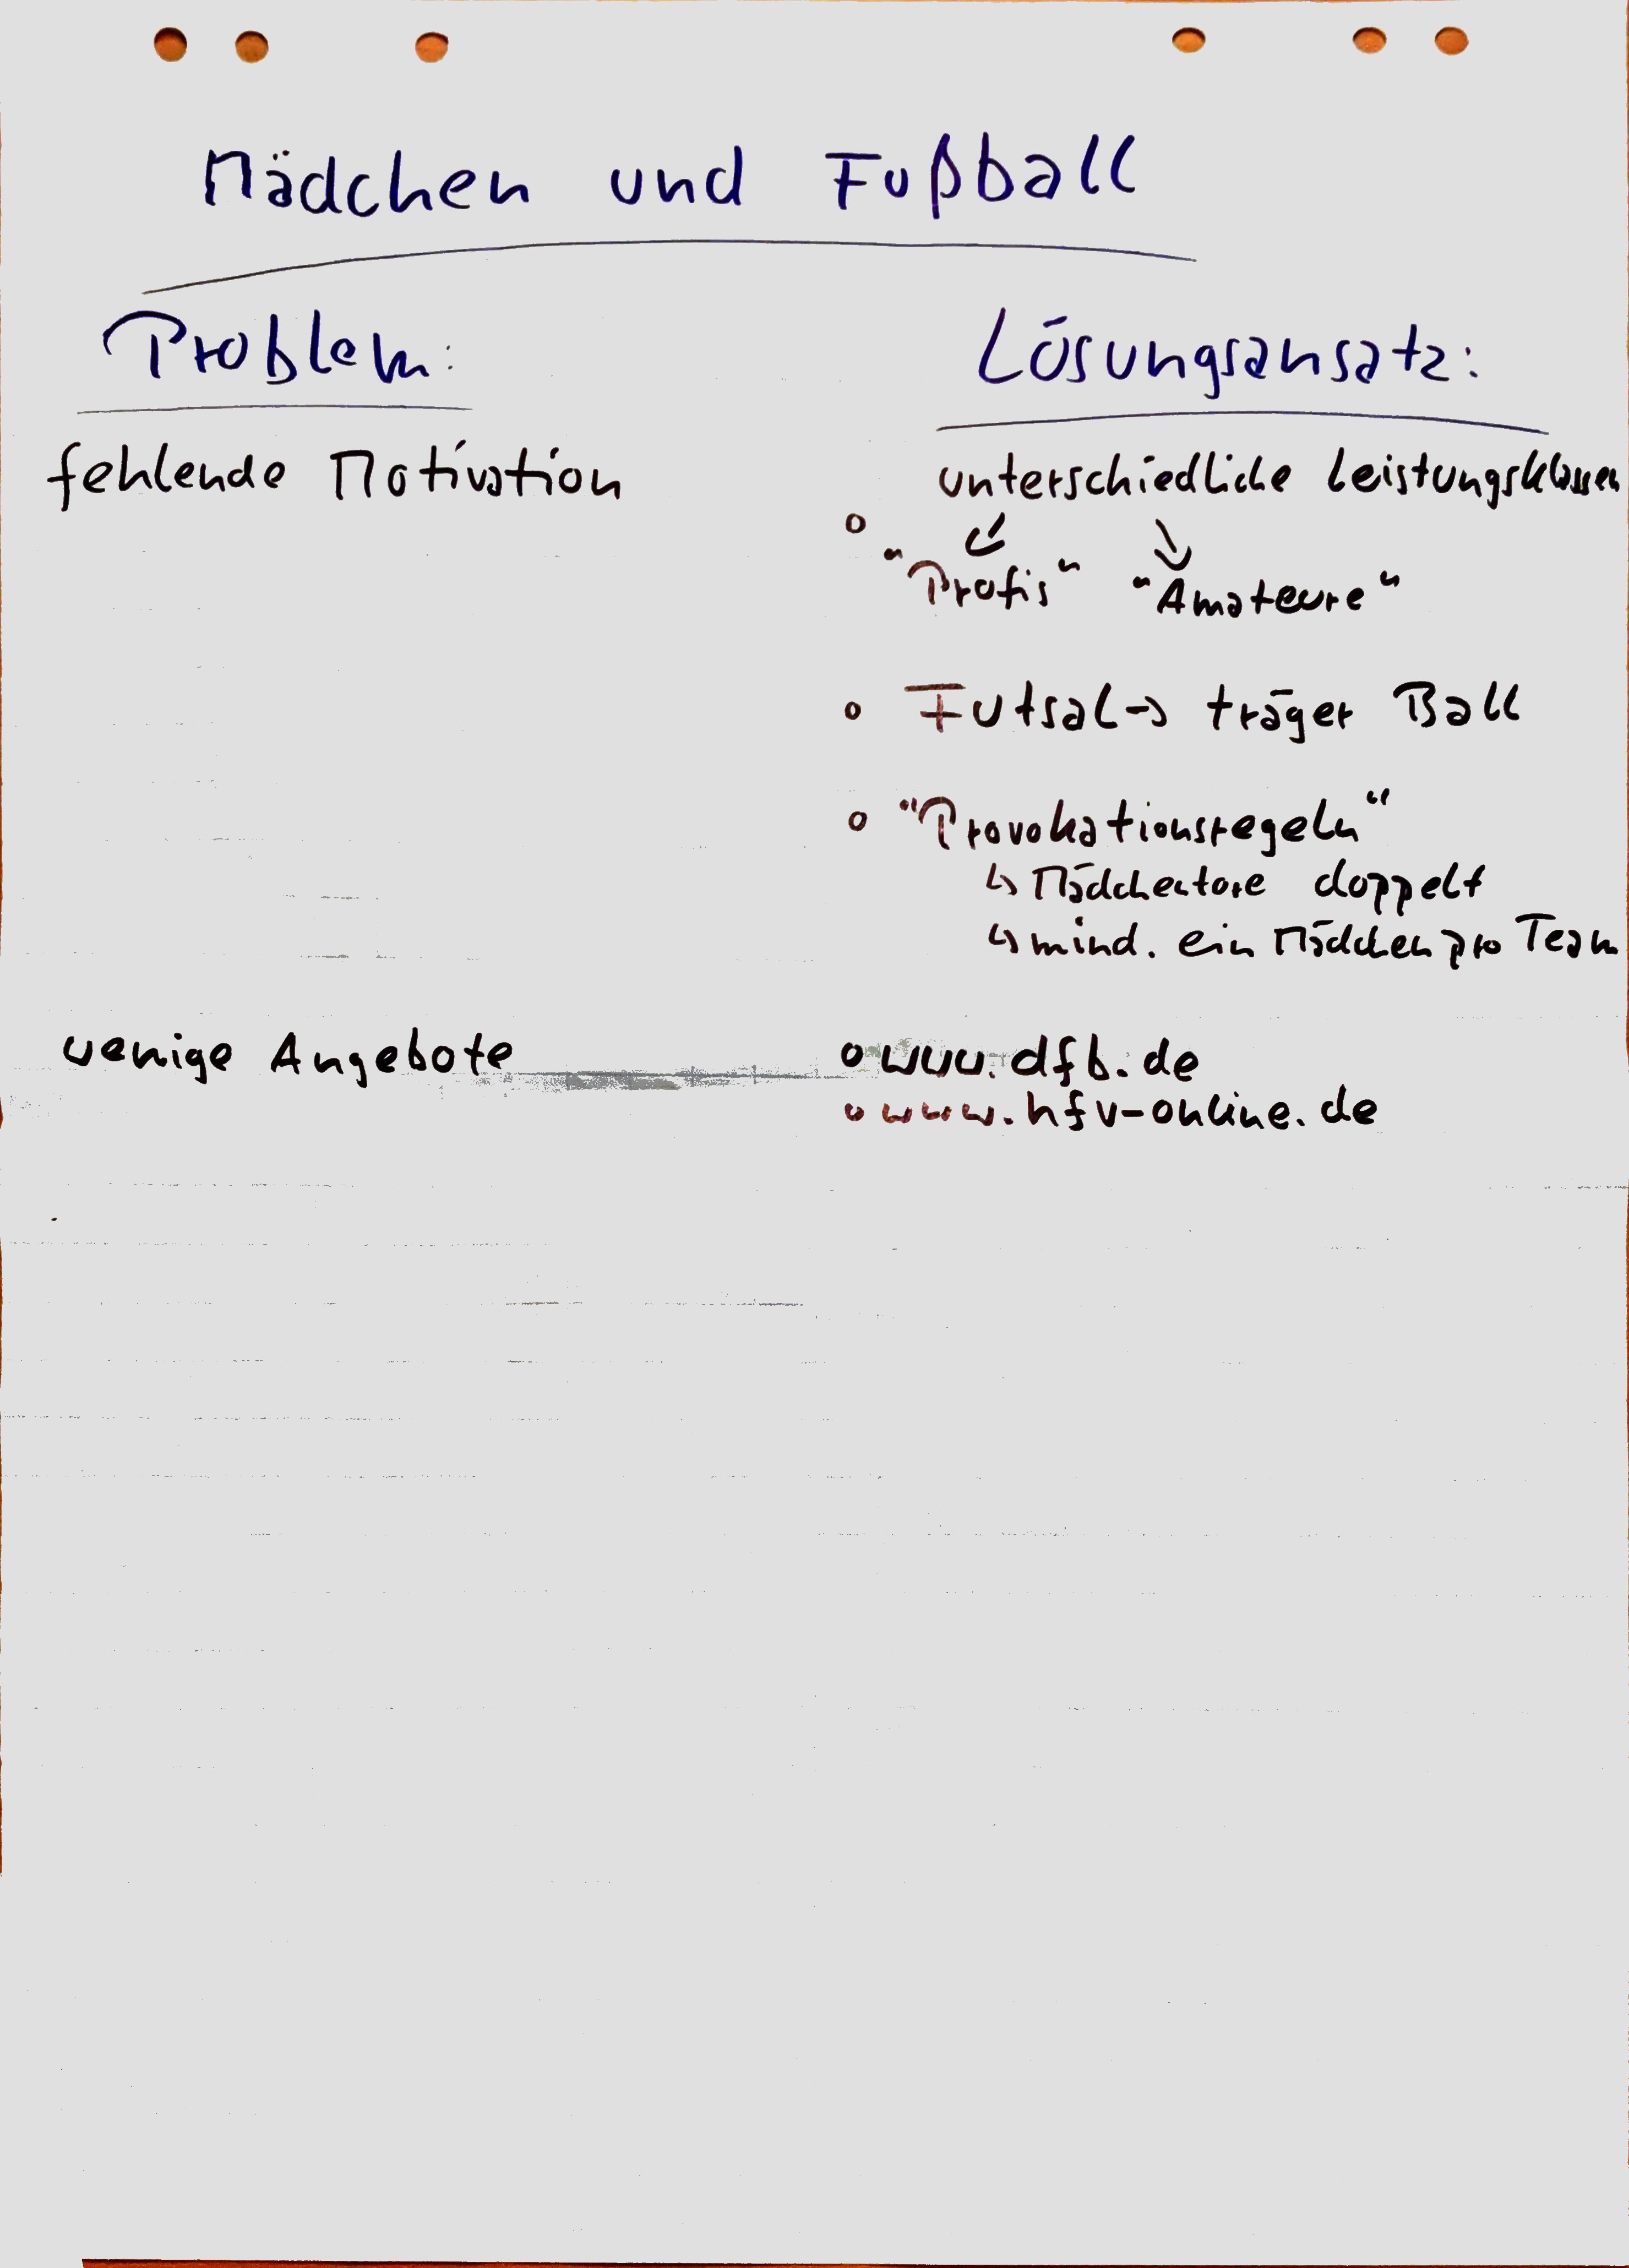 Mädchen und Fußball
Problem:
Lösungsansatz:
fehlende Motivation
unterschiedliche Leistungsklassen
"Profis" "Amateure"
Futsal -> träger Ball
"Provokationsregeln"
↳ Mädchentore doppelt
↳ mind. ein Mädchen pro Team
wenige Angebote
www.dfb.de
www.hfv-online.de